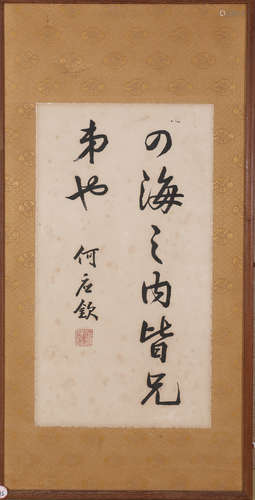 四海之內皆兄
弟也
何应欽